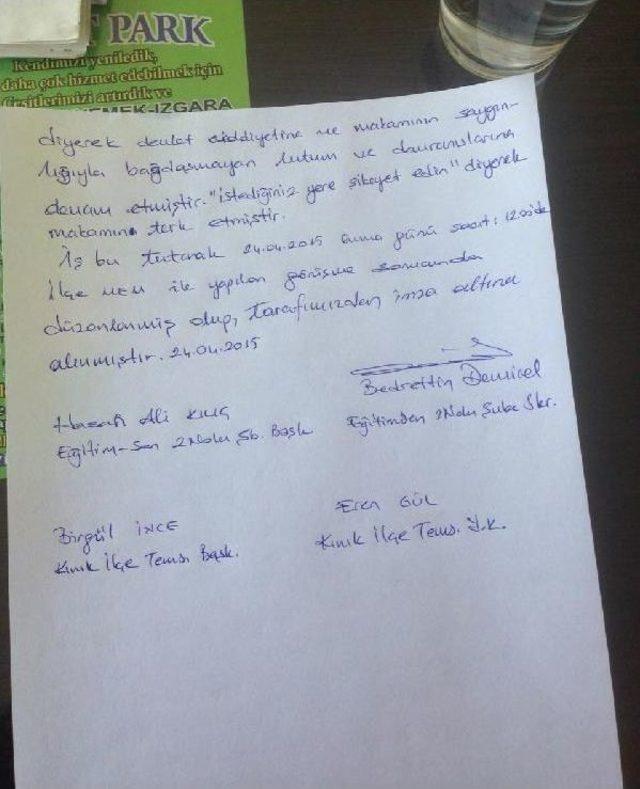 PARK
Kendimizi yeniledik,
daha çok hizmet edebilmek için
Çeşitlerimizi artırdık ve
EMEK-IZGARA
diyerek devlet ciddiyetine ve makamının saygın-
lığıyla bağdaşmayan tutum ve davranışlarına
devam etmiştir. "istediğiniz yere şikayet edin" diyerek
makamını terk etmiştir.
İş bu tutanak 24.04.2015 cuma günü saat: 12.00'de
İlçe MEM ile yapılan görüşme sonucunda
düzenlenmiş olup, tarafımızdan imza altına
alınmıştır. 24.04.2015
Bedrettin Demirel
Hasan Ali KILIÇ
Eğitimden 2Nolu Şube Skr.
Eğitim-Sen 2Nolu Şb. Başk
Eren GÜL
Birgül İNCE
Kınık İlçe Tems. Y.K.
Kınık İlçe Tems. Başk.